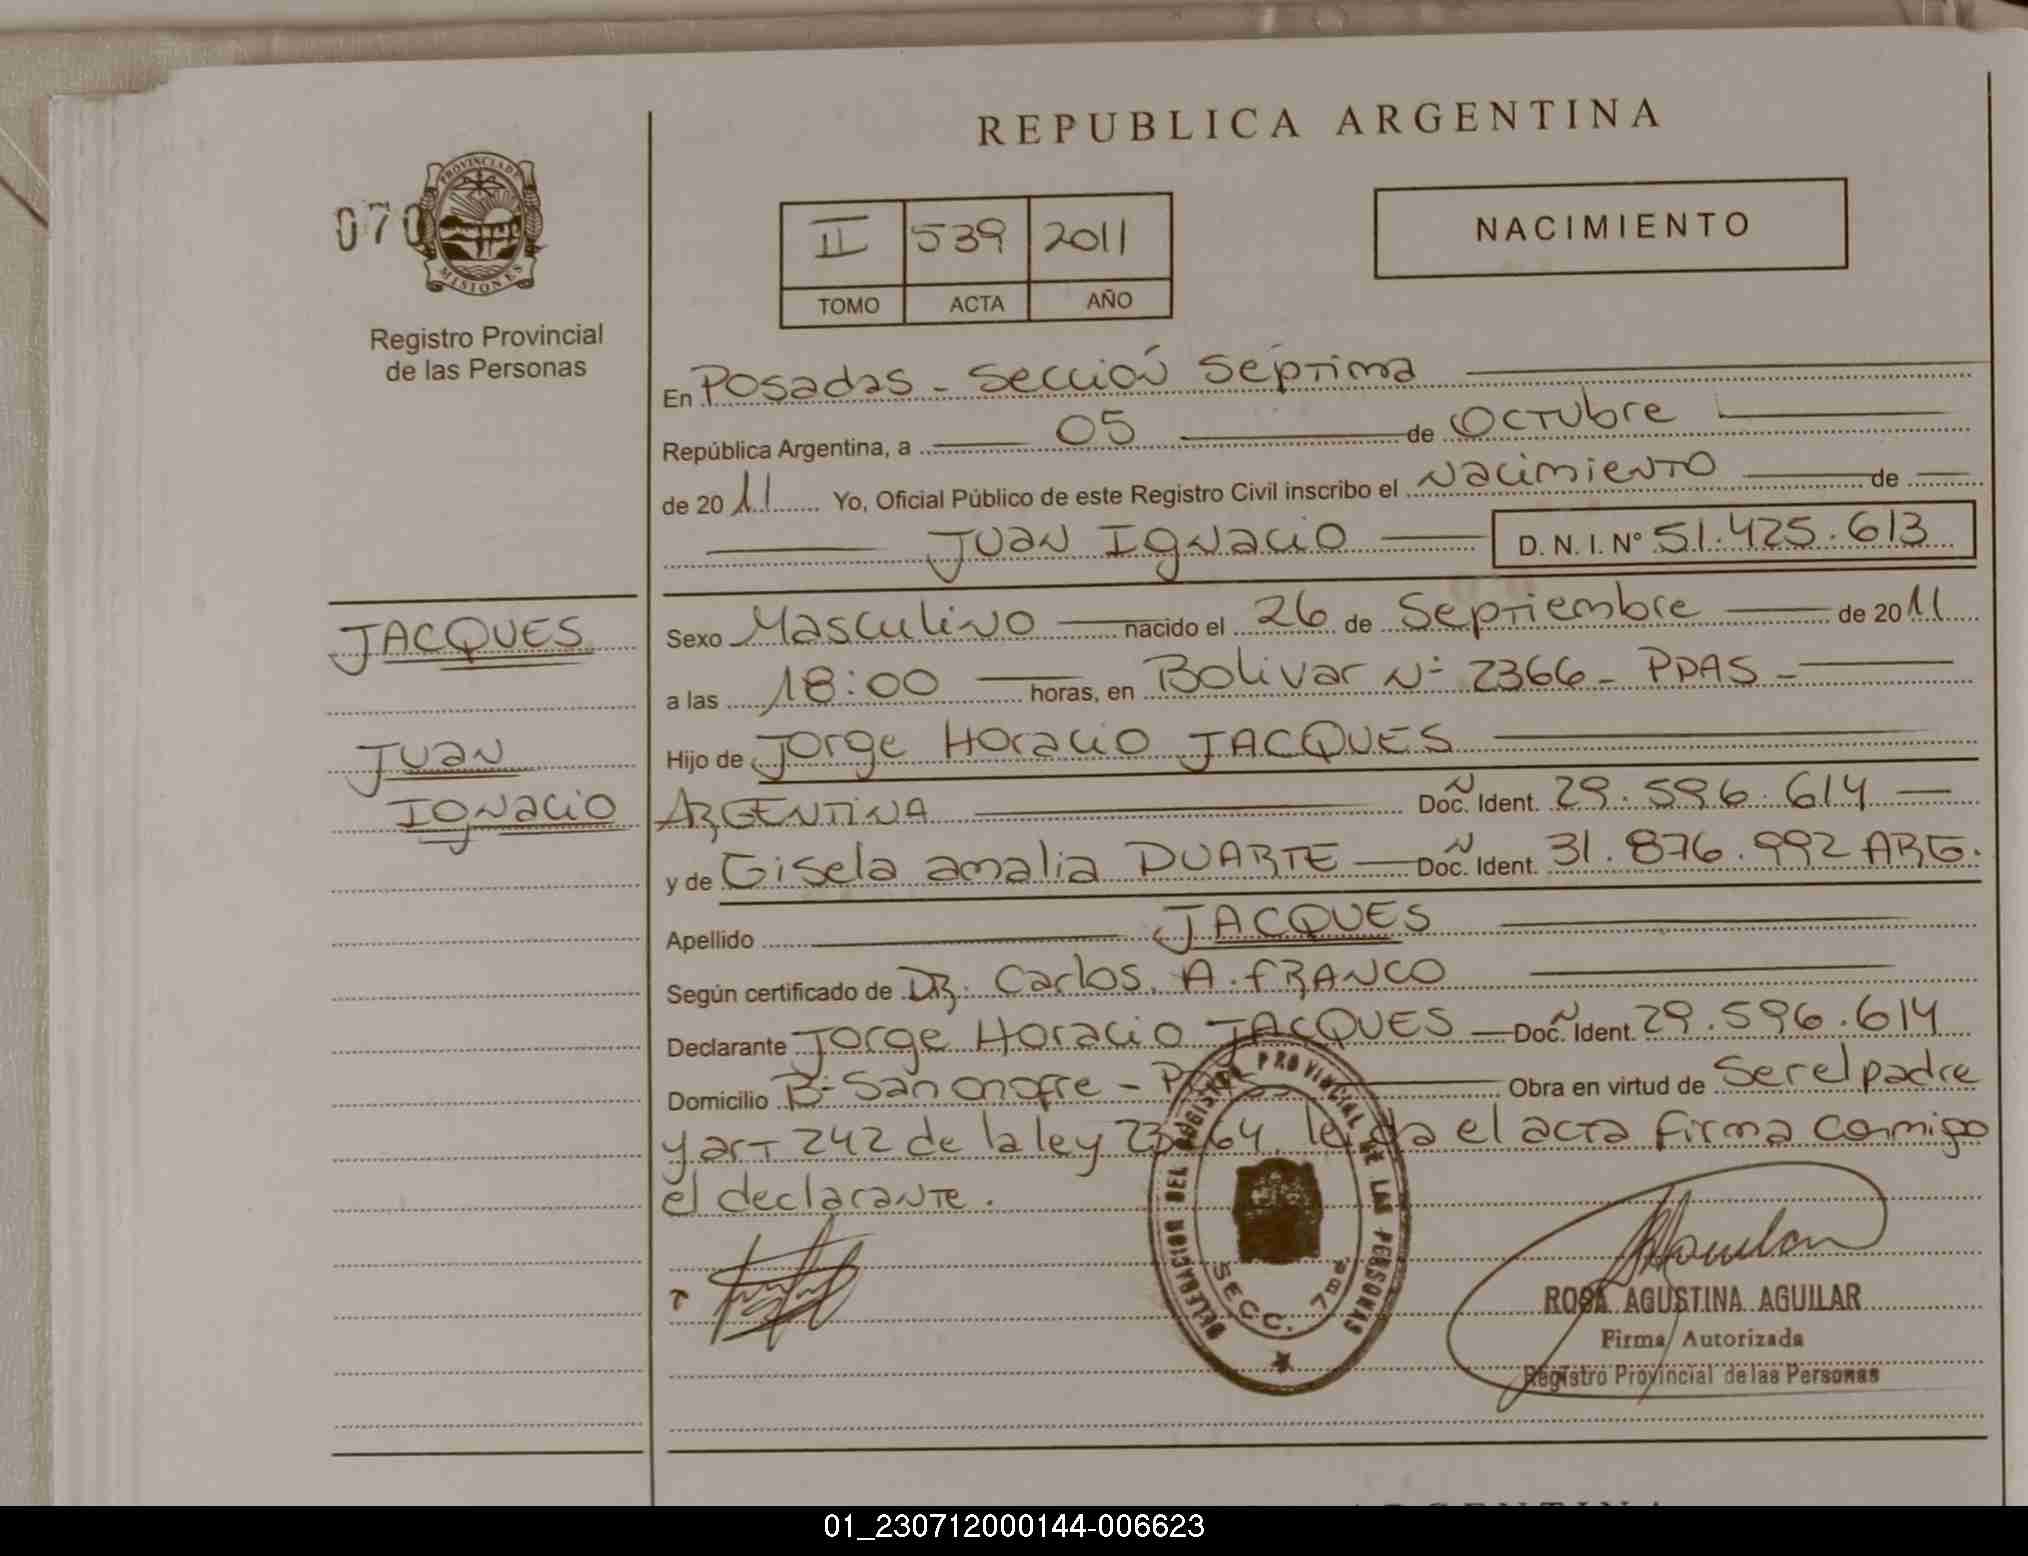 REPUBLICA ARGENTINA
070
PROVINCIA DE MISIONES
Registro Provincial
de las Personas
II 539 2011
TOMO ACTA AÑO
NACIMIENTO
En Posadas - Sección Séptima
República Argentina, a 05 de Octubre
de 2011 Yo, Oficial Público de este Registro Civil inscribo el Nacimiento de
Juan Ignacio D. N. I. Nº 51.425.613
JACQUES
Juan
Ignacio
Sexo Masculino nacido el 26 de Septiembre de 2011
a las 18:00 horas, en Bolivar Nº 2366 - PDAS -
Hijo de Jorge Horacio JACQUES
ARGENTINA Doc. Ident. 29.596.614
y de Gisela amalia DUARTE Doc. Ident. 31.876.992 ARG.
Apellido JACQUES
Según certificado de DR. Carlos. A. FRANCO
Declarante Jorge Horacio JACQUES Doc. Ident. 29.596.614
Domicilio Bº San onofre - PDAS Obra en virtud de Ser el padre
y art 242 de la ley 23264. leida el acta firma conmigo
el declarante.
DELEGACION DEL REGISTRO PROVINCIAL DE LAS PERSONAS
SECC. 7ma
ROSA AGUSTINA AGUILAR
Firma Autorizada
Registro Provincial de las Personas
ARGENTINA
01_230712000144-006623